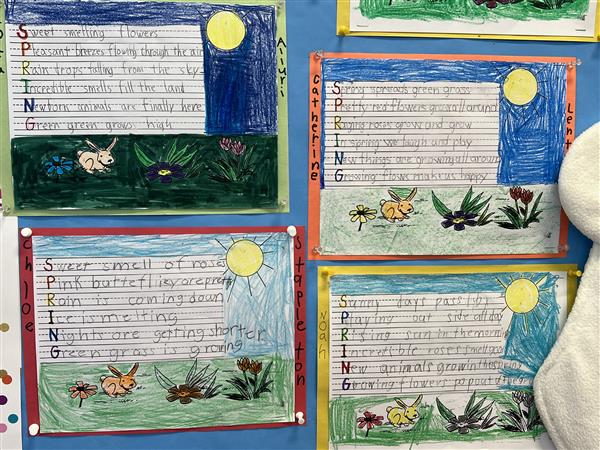 Sweet smelling flowers
Pleasant breezes flowing through the air
Rain drops falling from the sky
Incredible smells fill the land
Newborn animals are finally here
Green green grows high
Aiuri
Spring spreads green grass
Pretty red flowers grow all around
Roses grow and grow
In spring we laugh and play
New things are growing all around
Growing flows make us happy
Catherine
Lent
Sweet smell of roses
Pink butteflies are pretty
Rain is coming down
Ice is melting
Nights are getting shorter
Green grass is growing
Chloe
Stapleton
Sunny days pass by
Playing out side all day
Rising sun in the morning
Increcible roses smell good
New animals grow in the spring
Growing flowers pop out of the
Noah